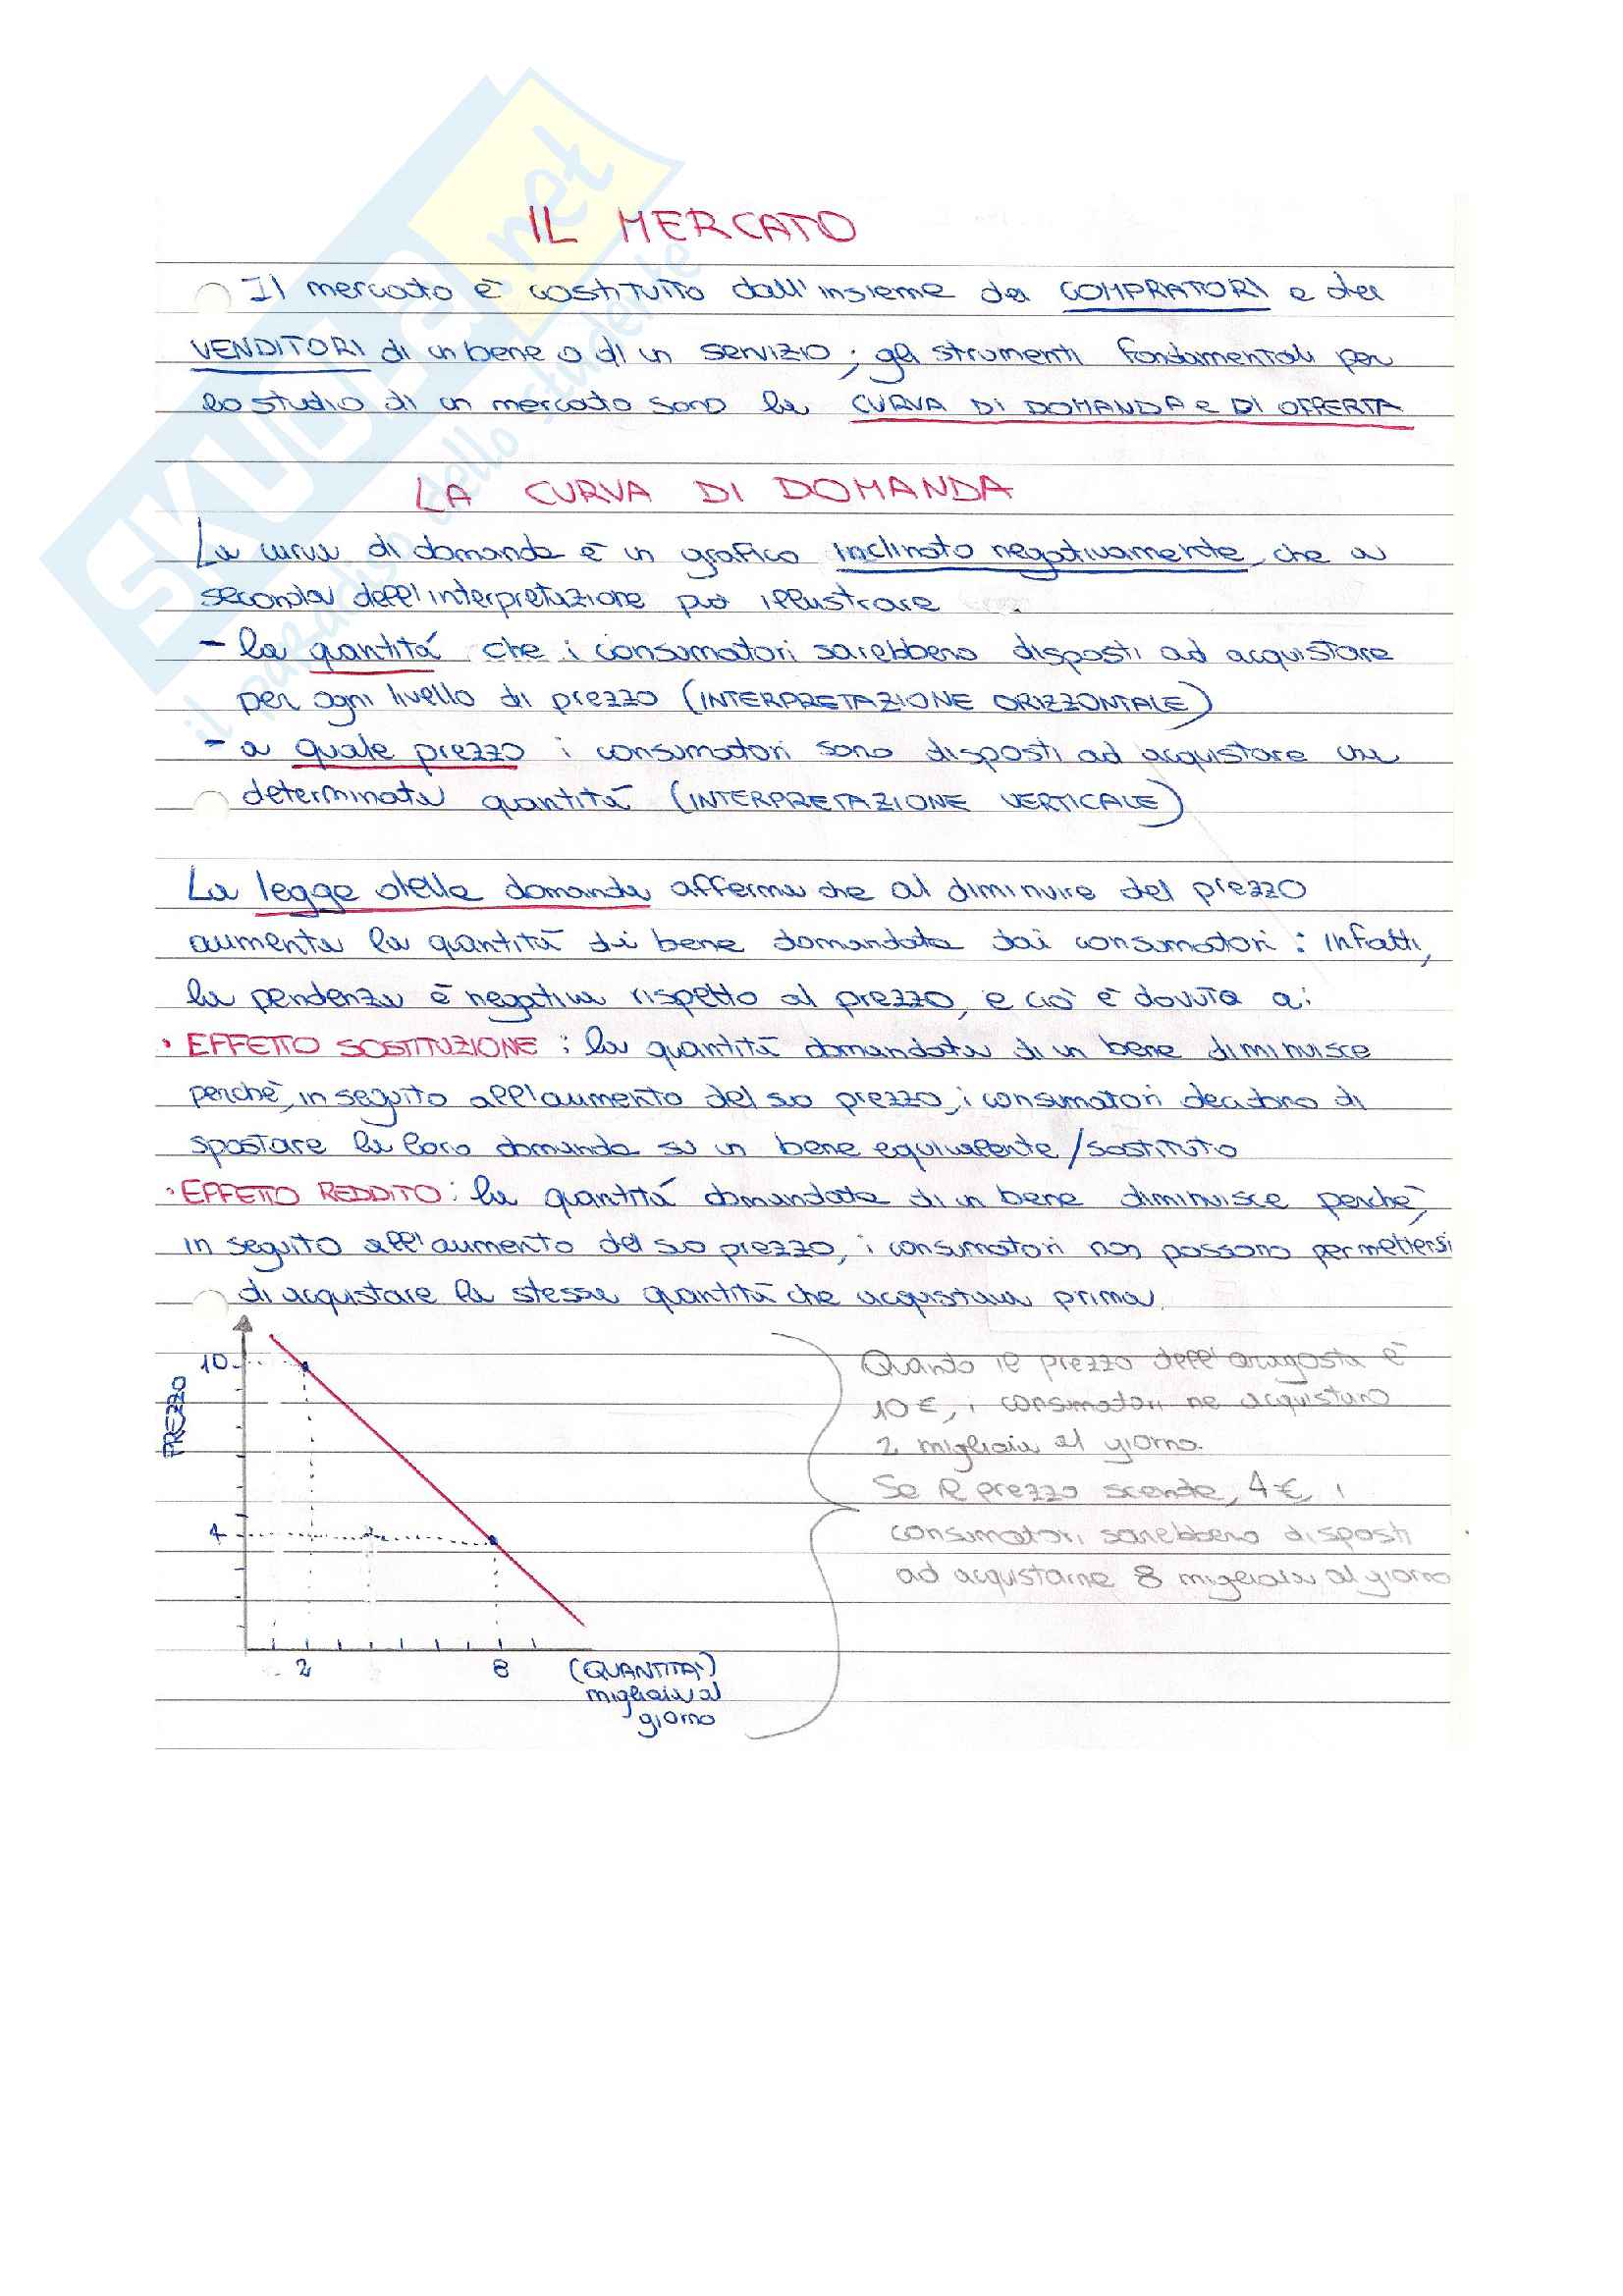 SKUOLA.net
il paradiso dello studente
IL MERCATO
Il mercato è costituito dall'insieme dei COMPRATORI e dei
VENDITORI di un bene o di un servizio; gli strumenti fondamentali per
lo studio di un mercato sono la CURVA DI DOMANDA e DI OFFERTA
LA CURVA DI DOMANDA
La curva di domanda è un grafico inclinato negativamente, che a
seconda dell'interpretazione può illustrare
- la quantità che i consumatori sarebbero disposti ad acquistare
per ogni livello di prezzo (INTERPRETAZIONE ORIZZONTALE)
- a quale prezzo i consumatori sono disposti ad acquistare una
determinata quantità (INTERPRETAZIONE VERTICALE)
La legge della domanda afferma che al diminuire del prezzo
aumenta la quantità di bene domandata dai consumatori: infatti,
la pendenza è negativa rispetto al prezzo, e ciò è dovuta a:
• EFFETTO SOSTITUZIONE: la quantità domandata di un bene diminuisce
perchè, in seguito all'aumento del suo prezzo, i consumatori decidono di
spostare la loro domanda su un bene equivalente/sostituto
• EFFETTO REDDITO: la quantità domandata di un bene diminuisce perchè,
in seguito all'aumento del suo prezzo, i consumatori non possono permettersi
di acquistare la stessa quantità che acquistava prima.
PREZZO
10
4
2
8
(QUANTITA')
migliaia al
giorno
Quando il prezzo dell'aragosta è
10€, i consumatori ne acquistano
2 migliaia al giorno.
Se il prezzo scende, 4€, i
consumatori sarebbero disposti
ad acquistarne 8 migliaia al giorno